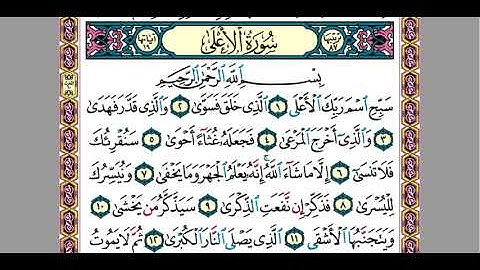 سُورَةُ الْأَعْلَى
بِسْمِ اللَّهِ الرَّحْمَٰنِ الرَّحِيمِ
سَبِّحِ اسْمَ رَبِّكَ الْأَعْلَى ١ الَّذِي خَلَقَ فَسَوَّىٰ ٢ وَالَّذِي قَدَّرَ فَهَدَىٰ
٣ وَالَّذِي أَخْرَجَ الْمَرْعَىٰ ٤ فَجَعَلَهُ غُثَاءً أَحْوَىٰ ٥ سَنُقْرِئُكَ
فَلَا تَنسَىٰ ٦ إِلَّا مَا شَاءَ اللَّهُ إِنَّهُ يَعْلَمُ الْجَهْرَ وَمَا يَخْفَىٰ ٧ وَنُيَسِّرُكَ
لِلْيُسْرَىٰ ٨ فَذَكِّرْ إِن نَّفَعَتِ الذِّكْرَىٰ ٩ سَيَذَّكَّرُ مَن يَخْشَىٰ ١٠
وَيَتَجَنَّبُهَا الْأَشْقَى ١١ الَّذِي يَصْلَى النَّارَ الْكُبْرَىٰ ١٢ ثُمَّ لَا يَمُوتُ